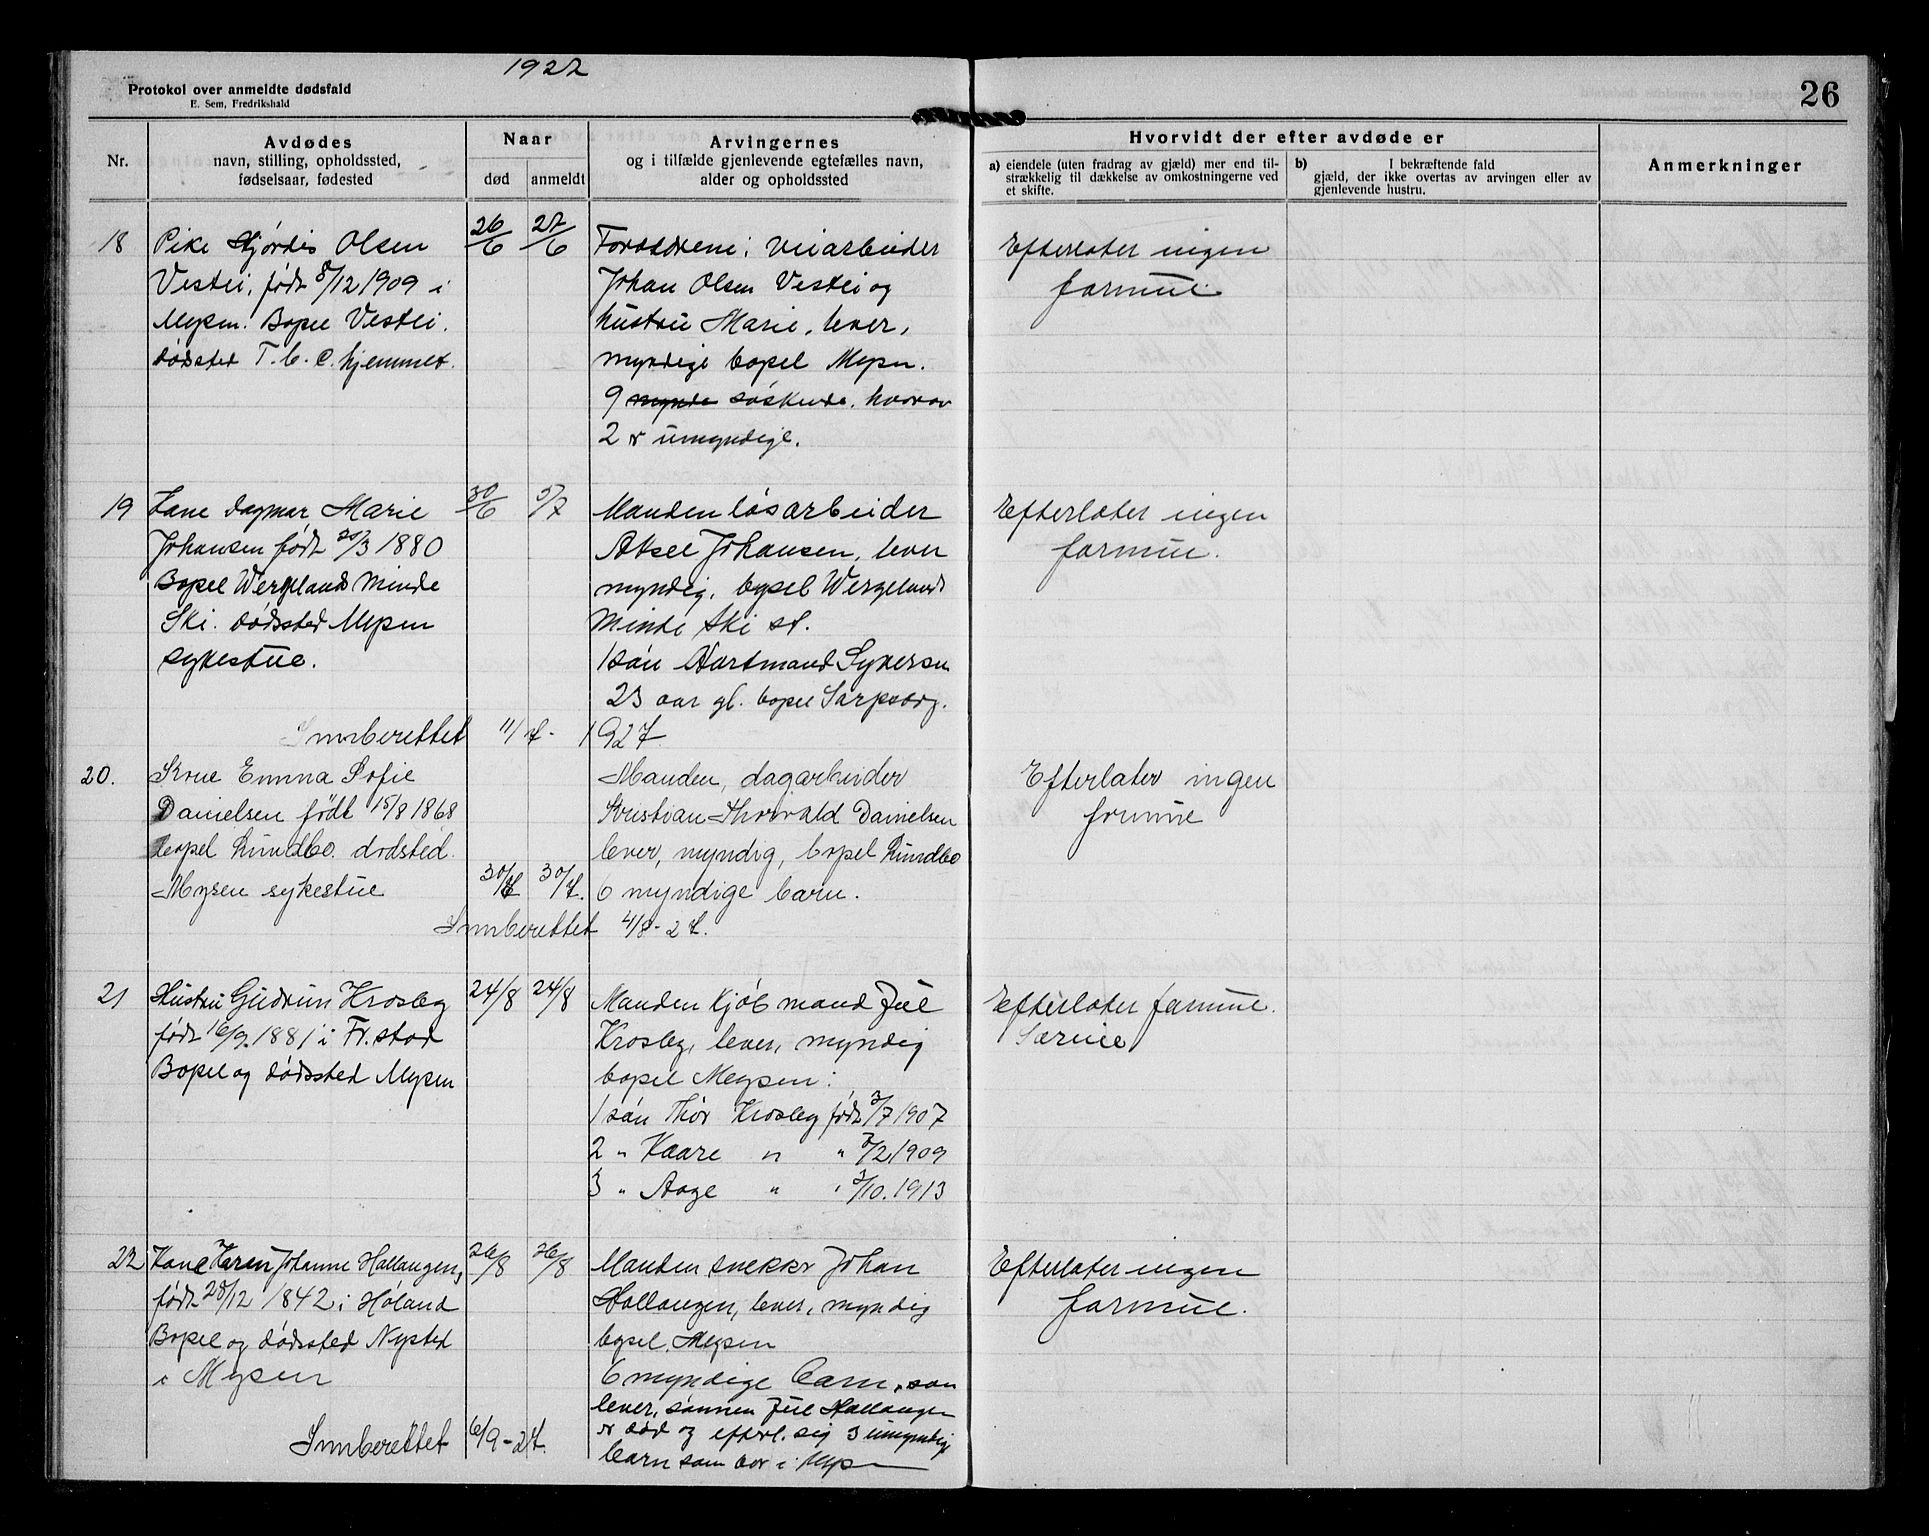 1927
Protokol over anmeldte dødsfald
E. Sem, Fredrikshald
26
Nr.
Avdødes
navn, stilling, opholdssted,
fødselsaar, fødested
Naar
død
anmeldt
Arvingernes
og i tilfælde gjenlevende egtefælles navn,
alder og opholdssted
Hvorvidt der efter avdøde er
a) eiendele (uten fradrag av gjæld) mer end til-
strækkelig til dækkelse av omkostningerne ved
et skifte.
b) I bekræftende fald
gjæld, der ikke overtas av arvingen eller av
gjenlevende hustru.
Anmerkninger
18
Pike Hjørdis Olsen
Vestli, født 8/12 1909 i
Mysen. Bopel Vestli.
dødsted T.b.c. hjemmet.
26/6
27/6
Forældrene: veiarbeider
Johan Olsen Vestli og
hustru Marie, lever,
myndige bopel Mysen.
9 mynde søskende, hvorav
2 er umyndige.
Efterlater ingen
formue.
19
Kone Dagmar Marie
Johansen født 25/3 1880
Bopel Wergelands Minde
Ski. dødssted Mysen
sykestue.
30/6
5/7
Manden løsarbeider
Aksel Johansen, lever
myndig, bopel Wergelands
Minde Ski st.
1 søn Hartmand Syversen
23 aar gl. bopel Sarpsborg.
Efterlater ingen
formue.
Innberettet 11/7- 1927.
20.
Kone Emma Sofie
Danielsen født 15/8 1868
bopel Lundbo. dødsted
Mysen sykestue
30/7
30/7.
Manden, dagarbeider
Kristian Thorvald Danielsen
lever, myndig, bopel Lundbo
6 myndige barn.
Efterlater ingen
formue
Innberettet 4/8-27.
21
Hustru Gudrun Krosby
født 16/9. 1881 i Fr.stad
Bopel og dødssted Mysen
24/8
24/8
Manden Kjøbmand Jul
Krosby, lever, myndig
bopel Mysen:
1 søn Thor Krosby født 3/7 1907
2 " Kaare " " 7/2 1909
3 " Aage " " 3/10. 1913
Efterlater formue.
Særeie
22
Kone Karen Johanne Hallangen,
født 28/12 1842 i Høland
Bopel og dødssted Nysted
i Mysen
26/8
26/8
Manden snekker Johan
Hallangen, lever, myndig
bopel, Mysen
6 myndige barn, som
lever, sønnen Jul Hallangen
er død og efterl. sig 3 umyndige
barn som bor i Mysen
Efterlater ingen
formue.
Innberettet 6/9-27.